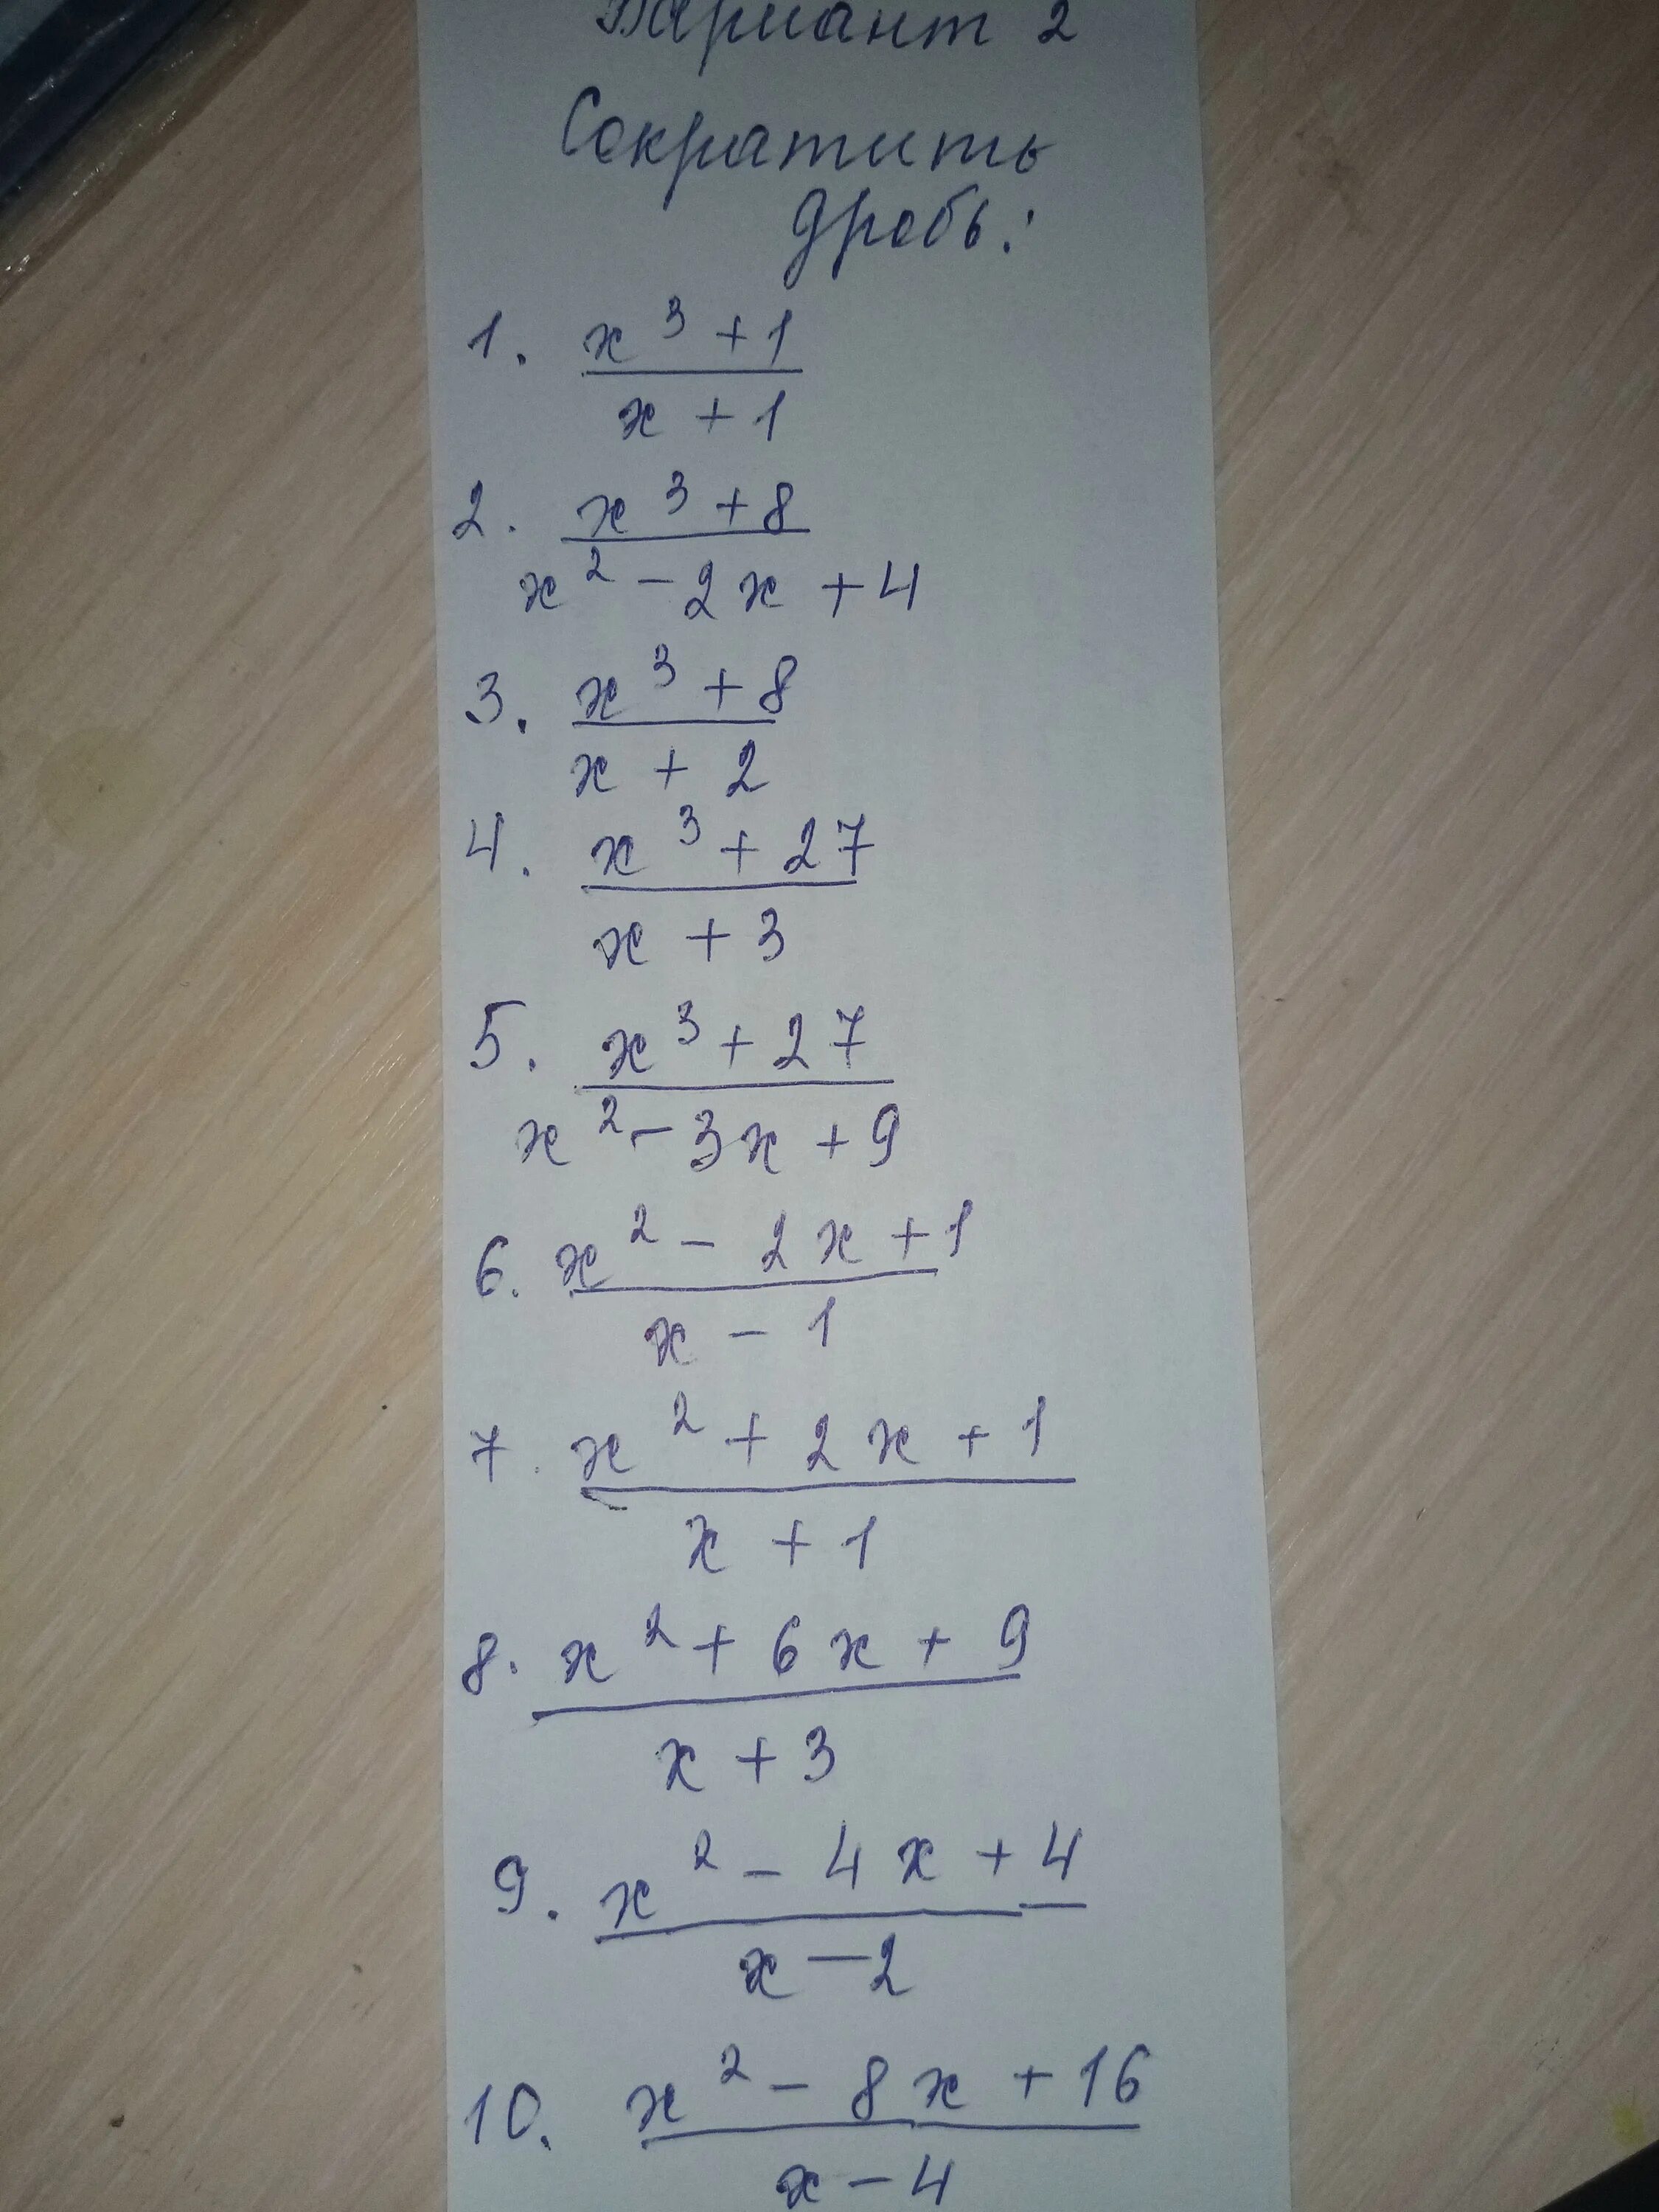 Вариант 2
Сократить
дробь:
1. x³ + 1
x + 1
2. x³ + 8
x² - 2x + 4
3. x³ + 8
x + 2
4. x³ + 27
x + 3
5. x³ + 27
x² - 3x + 9
6. x² - 2x + 1
x - 1
7. x² + 2x + 1
x + 1
8. x² + 6x + 9
x + 3
9. x² - 4x + 4
x - 2
10. x² - 8x + 16
x - 4